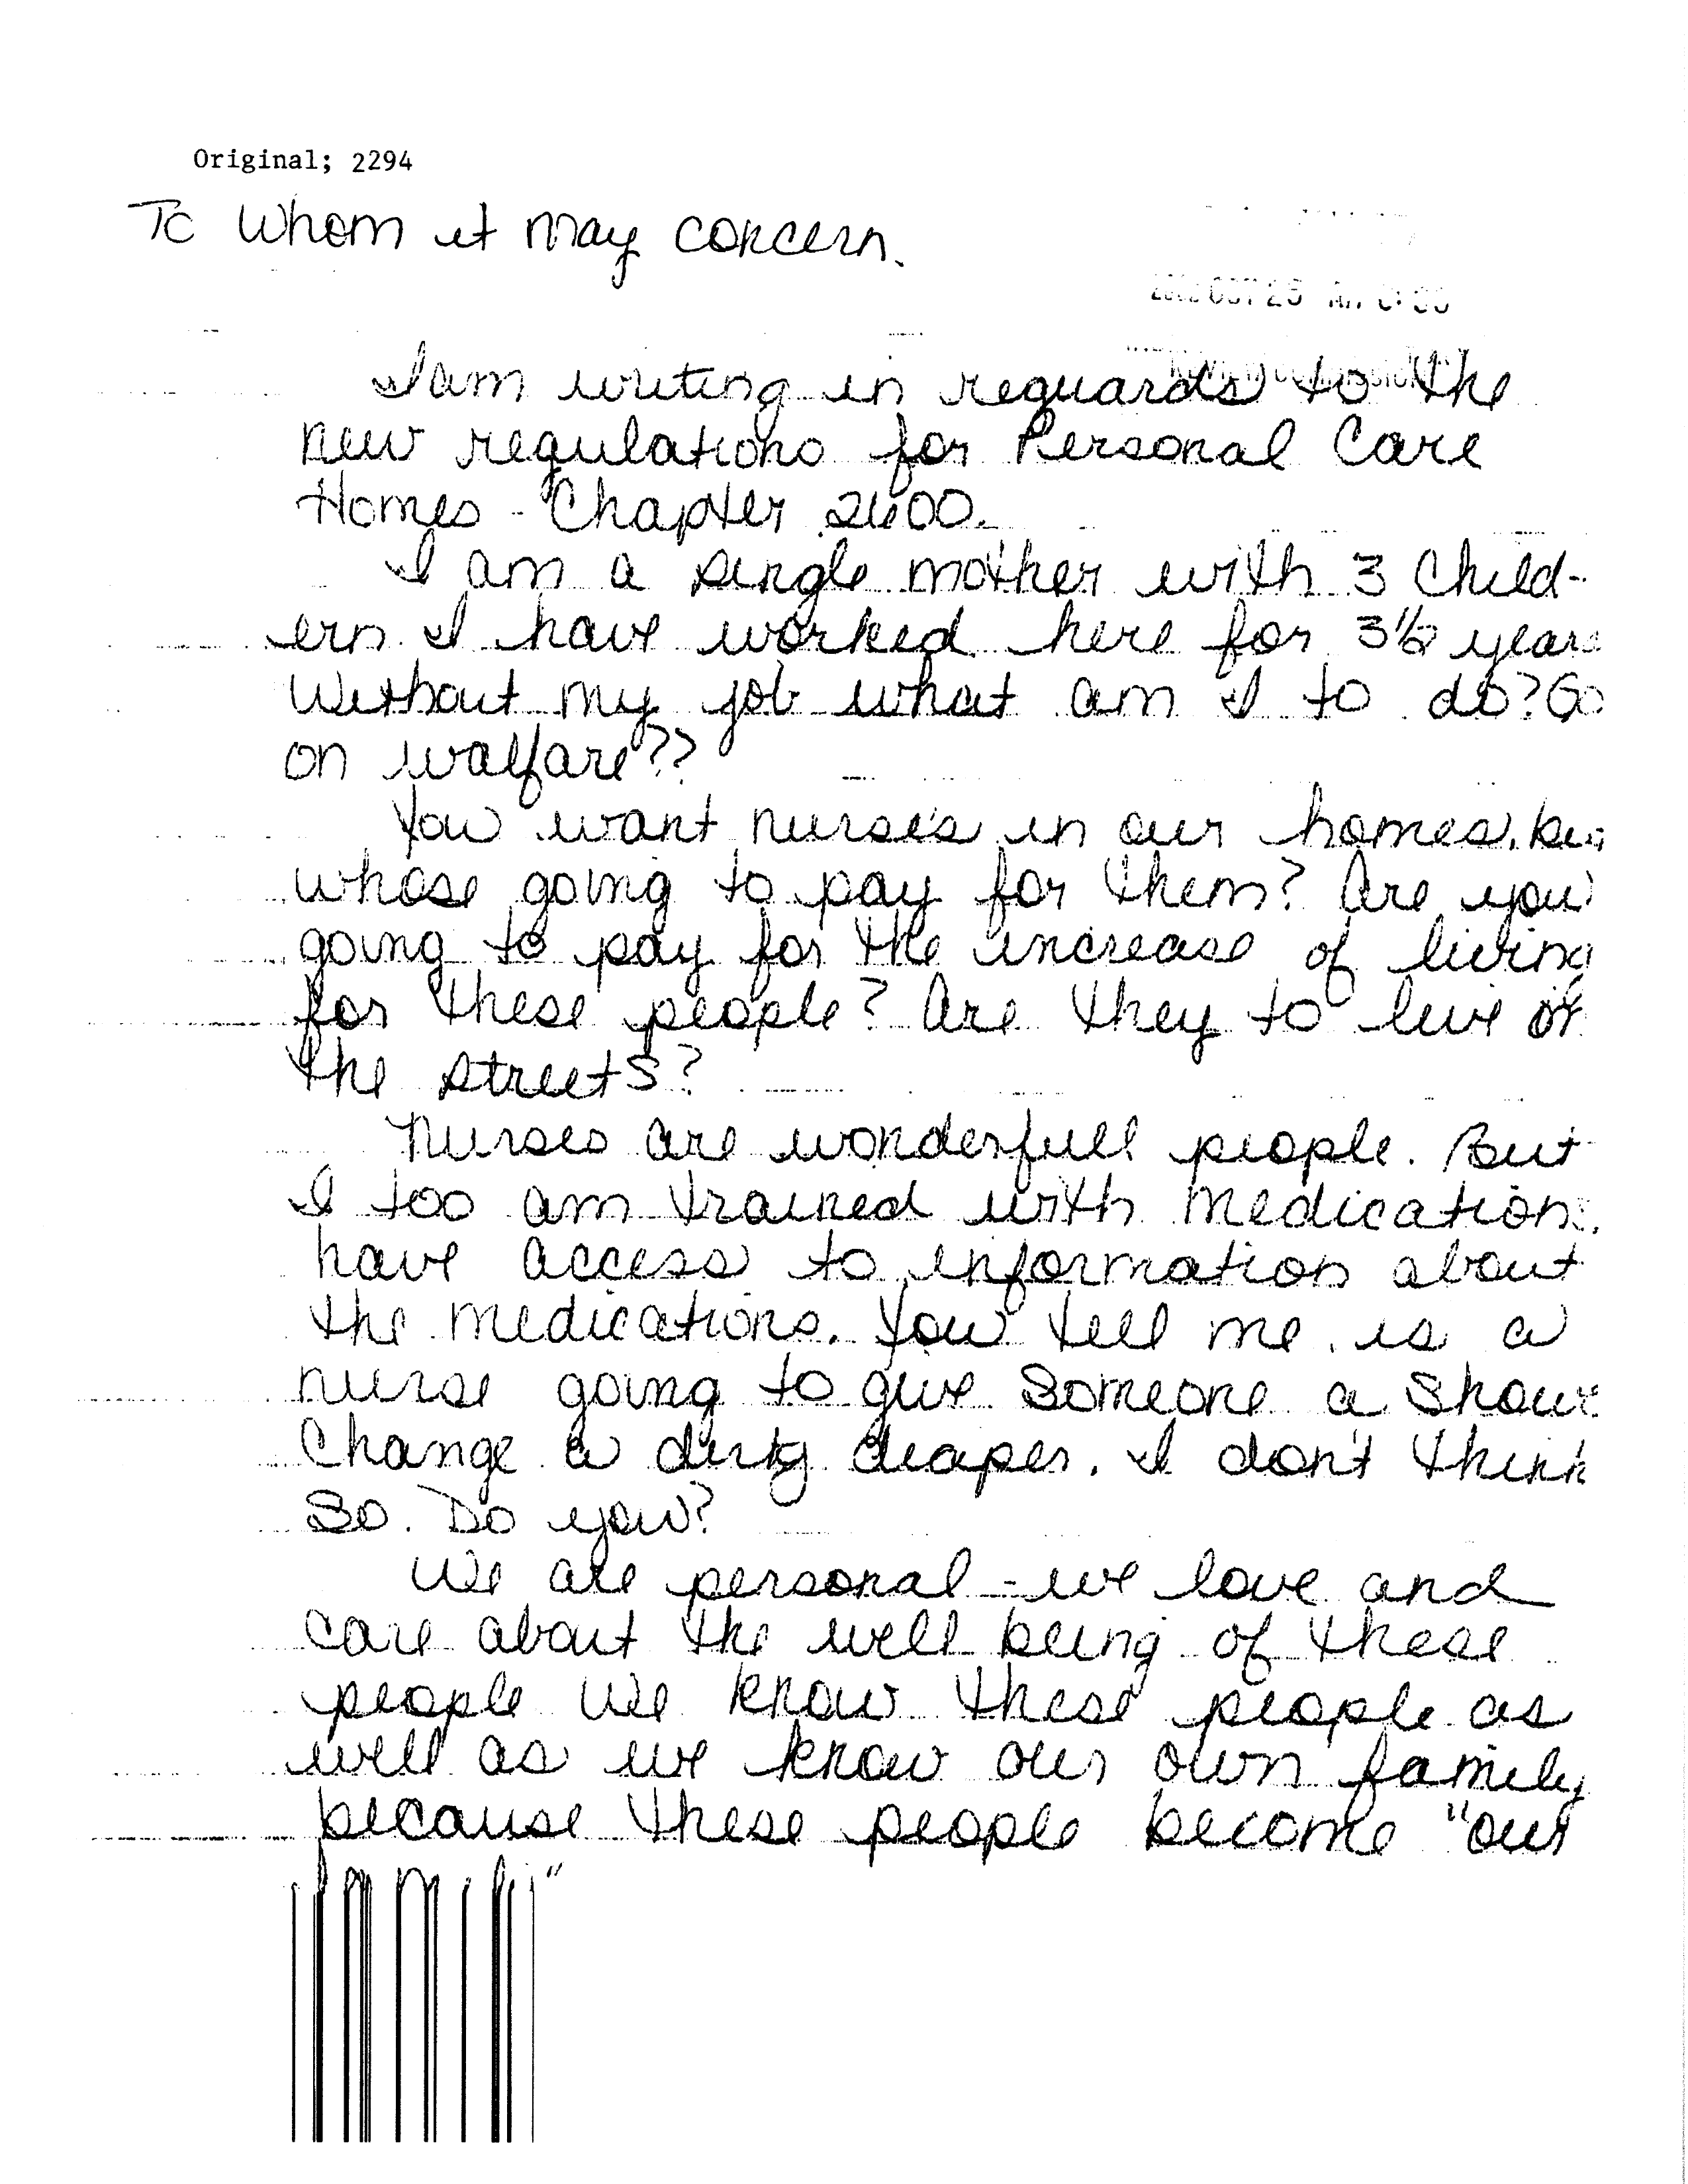 Original; 2294
To Whom it may concern.
I am writing in reguards to the
new regulations for Personal Care
Homes - Chapter 2600.
I am a single mother with 3 Child-
ern. I have worked here for 3½ years
Without my job what am I to do? Go
on walfare??
You want nurse's in our homes,
whose going to pay for them? Are you
going to pay for the increase of living
for these people? Are they to live
the streets?
Nurses are wonderfull people. But
I too am trained with medication
have access to information about
the medications. You tell me is a
nurse going to give someone a
Change a dirty diaper. I don't think
So. Do you?
We are personal - we love and
care about the well being of these
people we know these people as
well as we know our own family
because these people become "our
family"